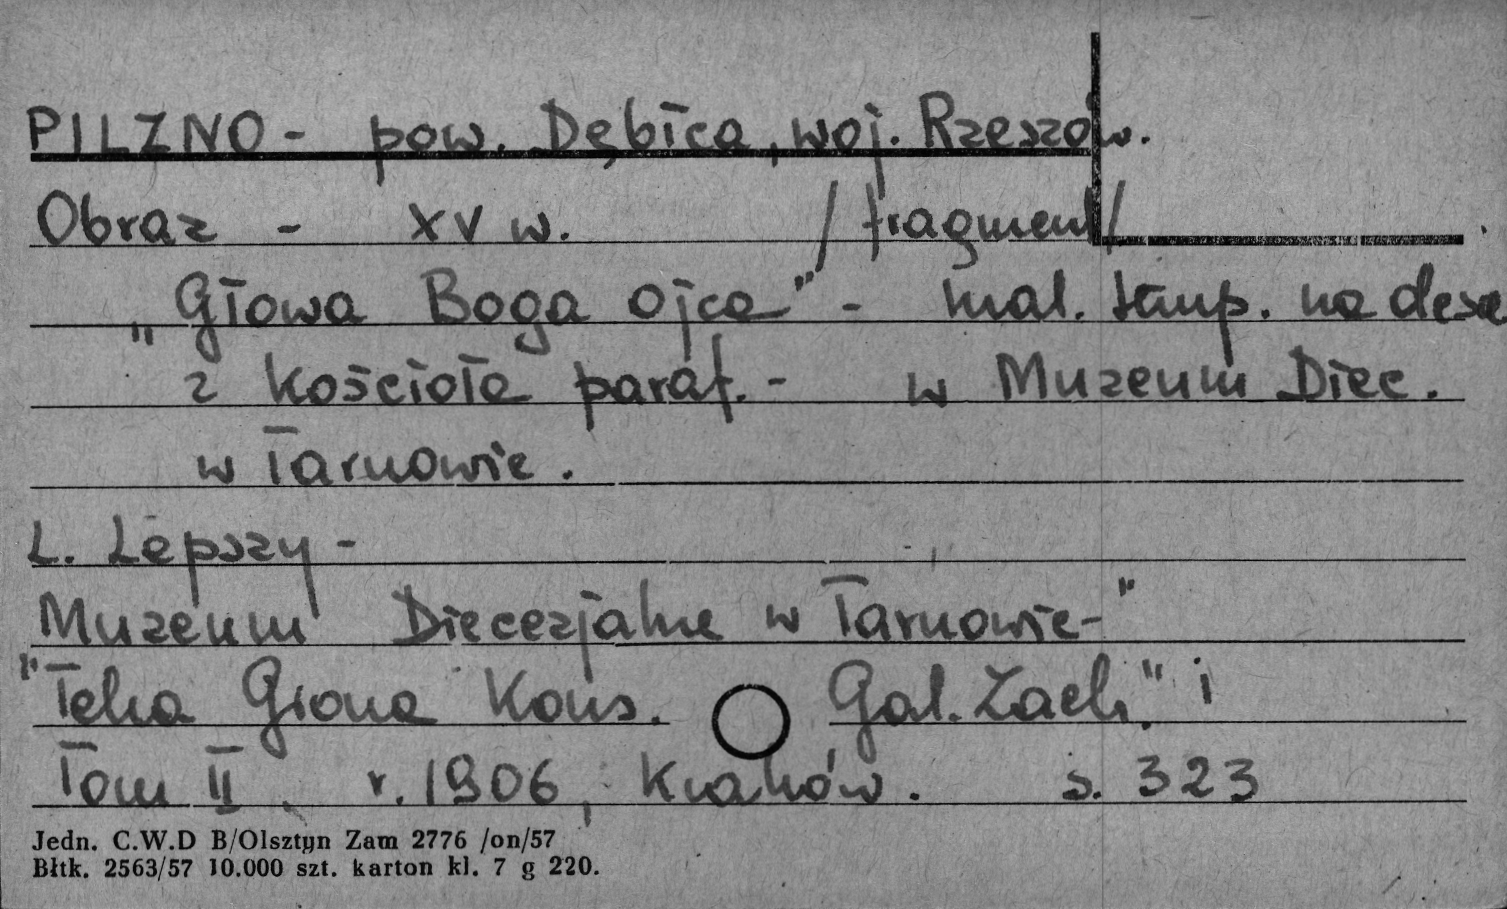 PILZNO - pow. Dębica, woj. Rzeszów.
Obraz - XV w. /fragment/
„Głowa Boga Ojca" - mal. temp. na desce
z kościoła paraf. - w Muzeum Diec.
w Tarnowie.
L. Lepszy -
Muzeum Diecezjalne w Tarnowie-"
"Teka Grona Kons. Gal. Zach." i
Tom II, r. 1906, Kraków. s. 323
Jedn. C.W.D B/Olsztyn Zam 2776 /on/57
Błtk. 2563/57 10.000 szt. karton kl. 7 g 220.